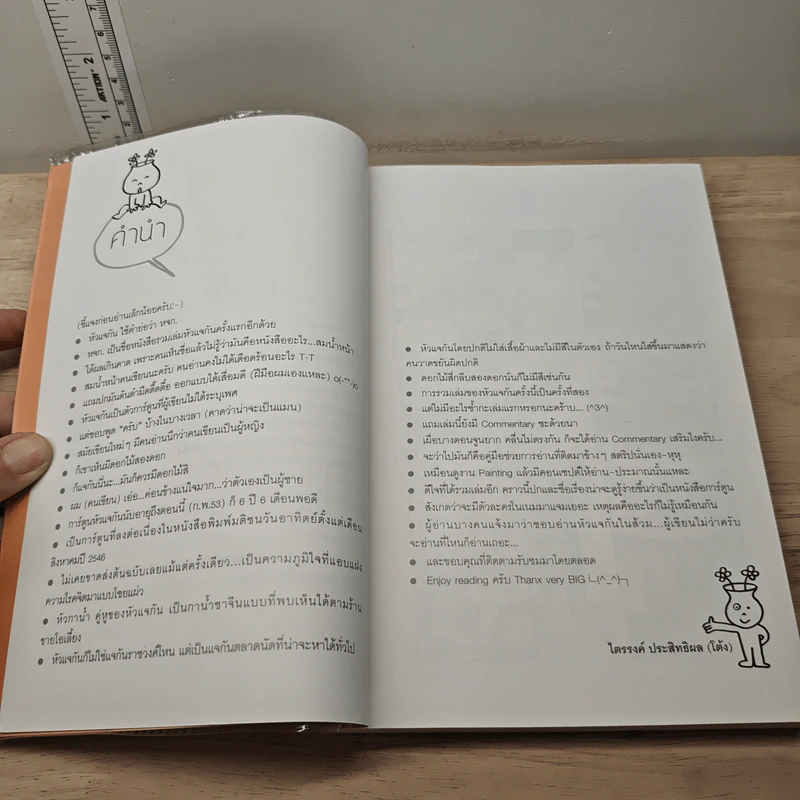 คำนำ
(ชี้แจงก่อนอ่านเล็กน้อยครับ:-)
● หัวแจกัน ใช้คำย่อว่า หจก.
● หจก. เป็นชื่อหนังสือรวมเล่มหัวแจกันครั้งแรกอีกด้วย
● ได้ผลเกินคาด เพราะคนเห็นชื่อแล้วไม่รู้ว่ามันคือหนังสืออะไร...สมน้ำหน้า
● สมน้ำหน้าคนเขียนนะครับ คนอ่านคงไม่ได้เดือดร้อนอะไร T-T
● แถมปกมันดันดำมืดตื๊ดตื๋อ ออกแบบได้เสื่อมดี (ฝีมือผมเองแหละ)
● หัวแจกันเป็นตัวการ์ตูนที่ผู้เขียนไม่ได้ระบุเพศ
● แต่ชอบพูด “ครับ” บ้างในบางเวลา (คาดว่าน่าจะเป็นแมน)
● สมัยเขียนใหม่ๆ มีคนอ่านนึกว่าคนเขียนเป็นผู้หญิง
● ก็เขาเห็นมีดอกไม้สองดอก
● ก็แจกันนี่นะ...มันก็ควรมีดอกไม้สิ
● ผม (คนเขียน) เอ่อ...ค่อนข้างแน่ใจมาก...ว่าตัวเองเป็นผู้ชาย
● การ์ตูนหัวแจกันนับอายุถึงตอนนี้ (ก.พ.53) ก็ 6 ปี 6 เดือนพอดี
● เป็นการ์ตูนที่ลงต่อเนื่องในหนังสือพิมพ์มติชนวันอาทิตย์ตั้งแต่เดือน
สิงหาคมปี 2546
● ไม่เคยขาดส่งต้นฉบับเลยแม้แต่ครั้งเดียว...เป็นความภูมิใจที่แอบแฝง
ความโรคจิตมาแบบโชยแผ่ว
● หัวกาน้ำ คู่หูของหัวแจกัน เป็นกาน้ำชาจีนแบบที่พบเห็นได้ตามร้าน
ขายโอเลี้ยง
● หัวแจกันก็ไม่ใช่แจกันราชวงศ์ไหน แต่เป็นแจกันตลาดนัดที่น่าจะหาได้ทั่วไป
● หัวแจกันโดยปกติไม่ใส่เสื้อผ้าและไม่มีสีในตัวเอง ถ้าวันไหนใส่ขึ้นมาแสดงว่า
คนวาดขยันผิดปกติ
● ดอกไม้สีกลีบสองดอกนั่นก็ไม่มีสีเช่นกัน
● การรวมเล่มของหัวแจกันครั้งนี้เป็นครั้งที่สอง
● แต่ไม่มีอะไรซ้ำกะเล่มแรกหรอกนะคร้าบ... (^3^)
● แถมเล่มนี้ยังมี Commentary ซะด้วยนา
● เผื่อบางตอนจูนยาก คลื่นไม่ตรงกัน ก็จะได้อ่าน Commentary เสริมไงครับ...
● จะว่าไปมันก็คือคู่มือช่วยการอ่านที่ติดมาข้างๆ สตริปนั่นเอง-หุหุ
● เหมือนดูงาน Painting แล้วมีคอนเซปต์ให้อ่าน-ประมาณนั้นแหละ
● ดีใจที่ได้รวมเล่มอีก คราวนี้ปกและชื่อเรื่องน่าจะดูรู้ง่ายขึ้นว่าเป็นหนังสือการ์ตูน
● สังเกตว่าจะมีตัวละครในเนมมาแจมเยอะ เหตุผลคืออะไรก็ไม่รู้เหมือนกัน
● ผู้อ่านบางคนแจ้งมาว่าชอบอ่านหัวแจกันในส้วม...ผู้เขียนไม่ว่าครับ
จะอ่านที่ไหนก็อ่านเถอะ...
● และขอบคุณที่ติดตามรับชมมาโดยตลอด
● Enjoy reading ครับ Thanx very BIG ∟(^_^)┐
ไตรรงค์ ประสิทธิผล (โต้ง)
AKTION
1
2
5
6
7